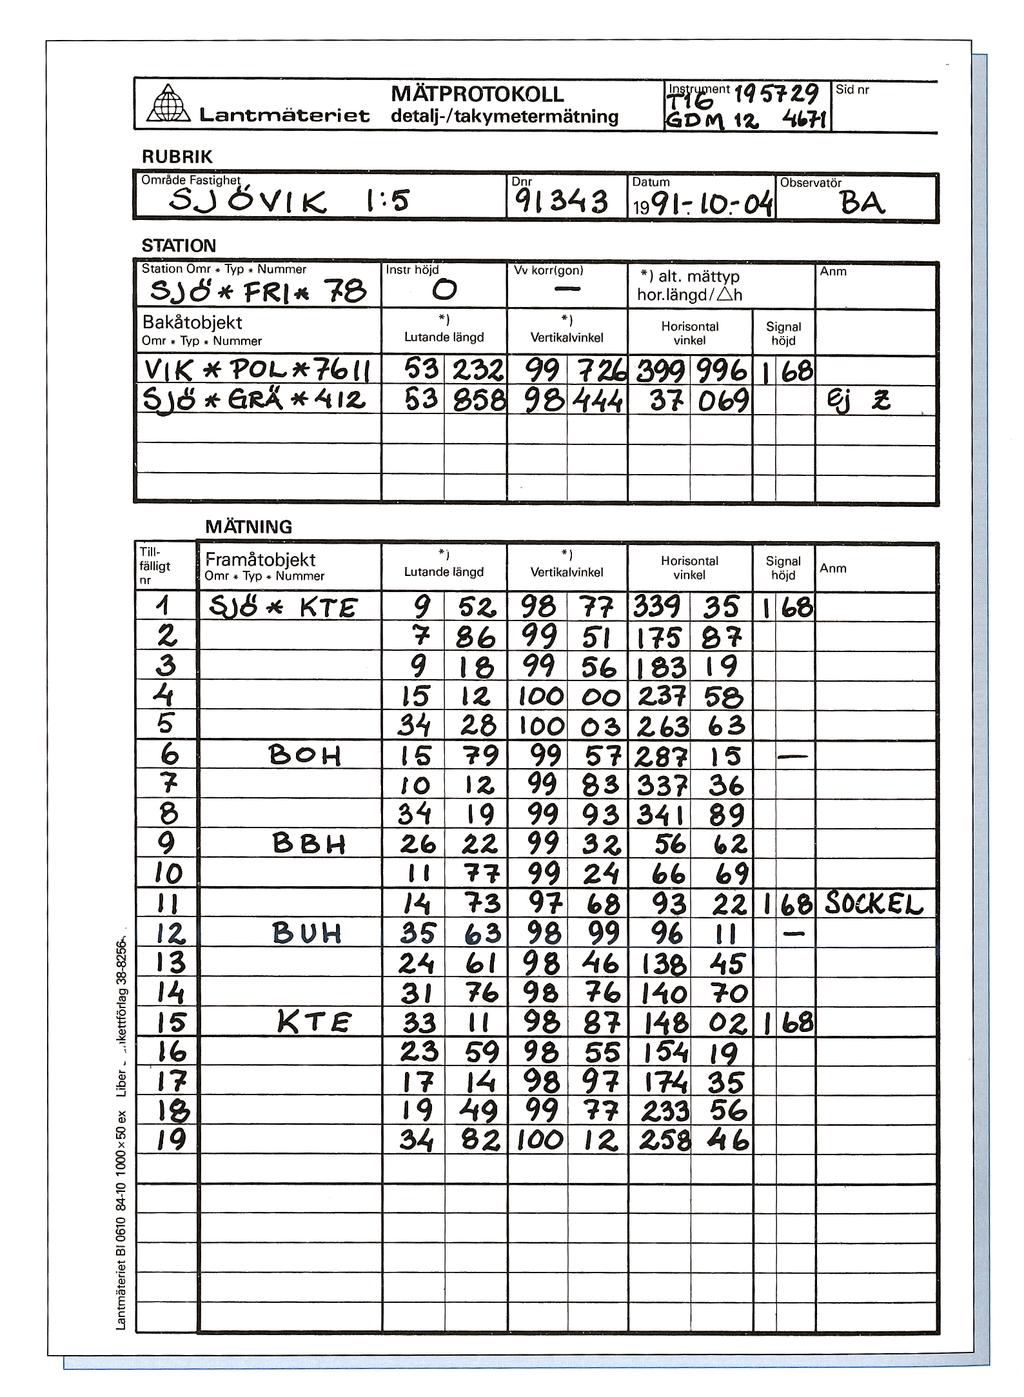 Lantmäteriet
MÄTPROTOKOLL
detalj-/takymetermätning
Instrument
T16 195729
GDM 12 4671
Sid nr
RUBRIK
Område Fastighet
SJÖVIK 1:5
Dnr
91343
Datum
1991-10-04
Observatör
BA
STATION
Station Omr * Typ * Nummer
SJÖ * FRI * 78
Instr höjd
0
Vv korr(gon)
—
*) alt. mättyp
hor.längd/△h
Anm
Bakåtobjekt
Omr * Typ * Nummer
*)
Lutande längd
*)
Vertikalvinkel
Horisontal
vinkel
Signal
höjd
VIK * POL * 7611 53 232 99 726 399 996 1 68
SJÖ * GRÄ * 412 53 858 98 444 37 069 Ej Z
MÄTNING
Till-
fälligt
nr
Framåtobjekt
Omr * Typ * Nummer
*)
Lutande längd
*)
Vertikalvinkel
Horisontal
vinkel
Signal
höjd
Anm
1 SJÖ * KTE 9 52 98 77 339 35 1 68
2 7 86 99 51 175 87
3 9 18 99 56 183 19
4 15 12 100 00 237 58
5 34 28 100 03 263 63
6 BOH 15 79 99 57 287 15 —
7 10 12 99 83 337 36
8 34 19 99 93 341 89
9 BBH 26 22 99 32 56 62
10 11 77 99 24 66 69
11 14 73 97 68 93 22 1 68 SOCKEL
12 BUH 35 63 98 99 96 11 —
13 24 61 98 46 138 45
14 31 76 98 76 140 70
15 KTE 33 11 98 87 148 02 1 68
16 23 59 98 55 154 19
17 17 14 98 97 174 35
18 19 49 99 77 233 56
19 34 82 100 12 258 46
Lantmäteriet BI 0610 84-10 1000×50 ex Liber kettförlag 38-8256